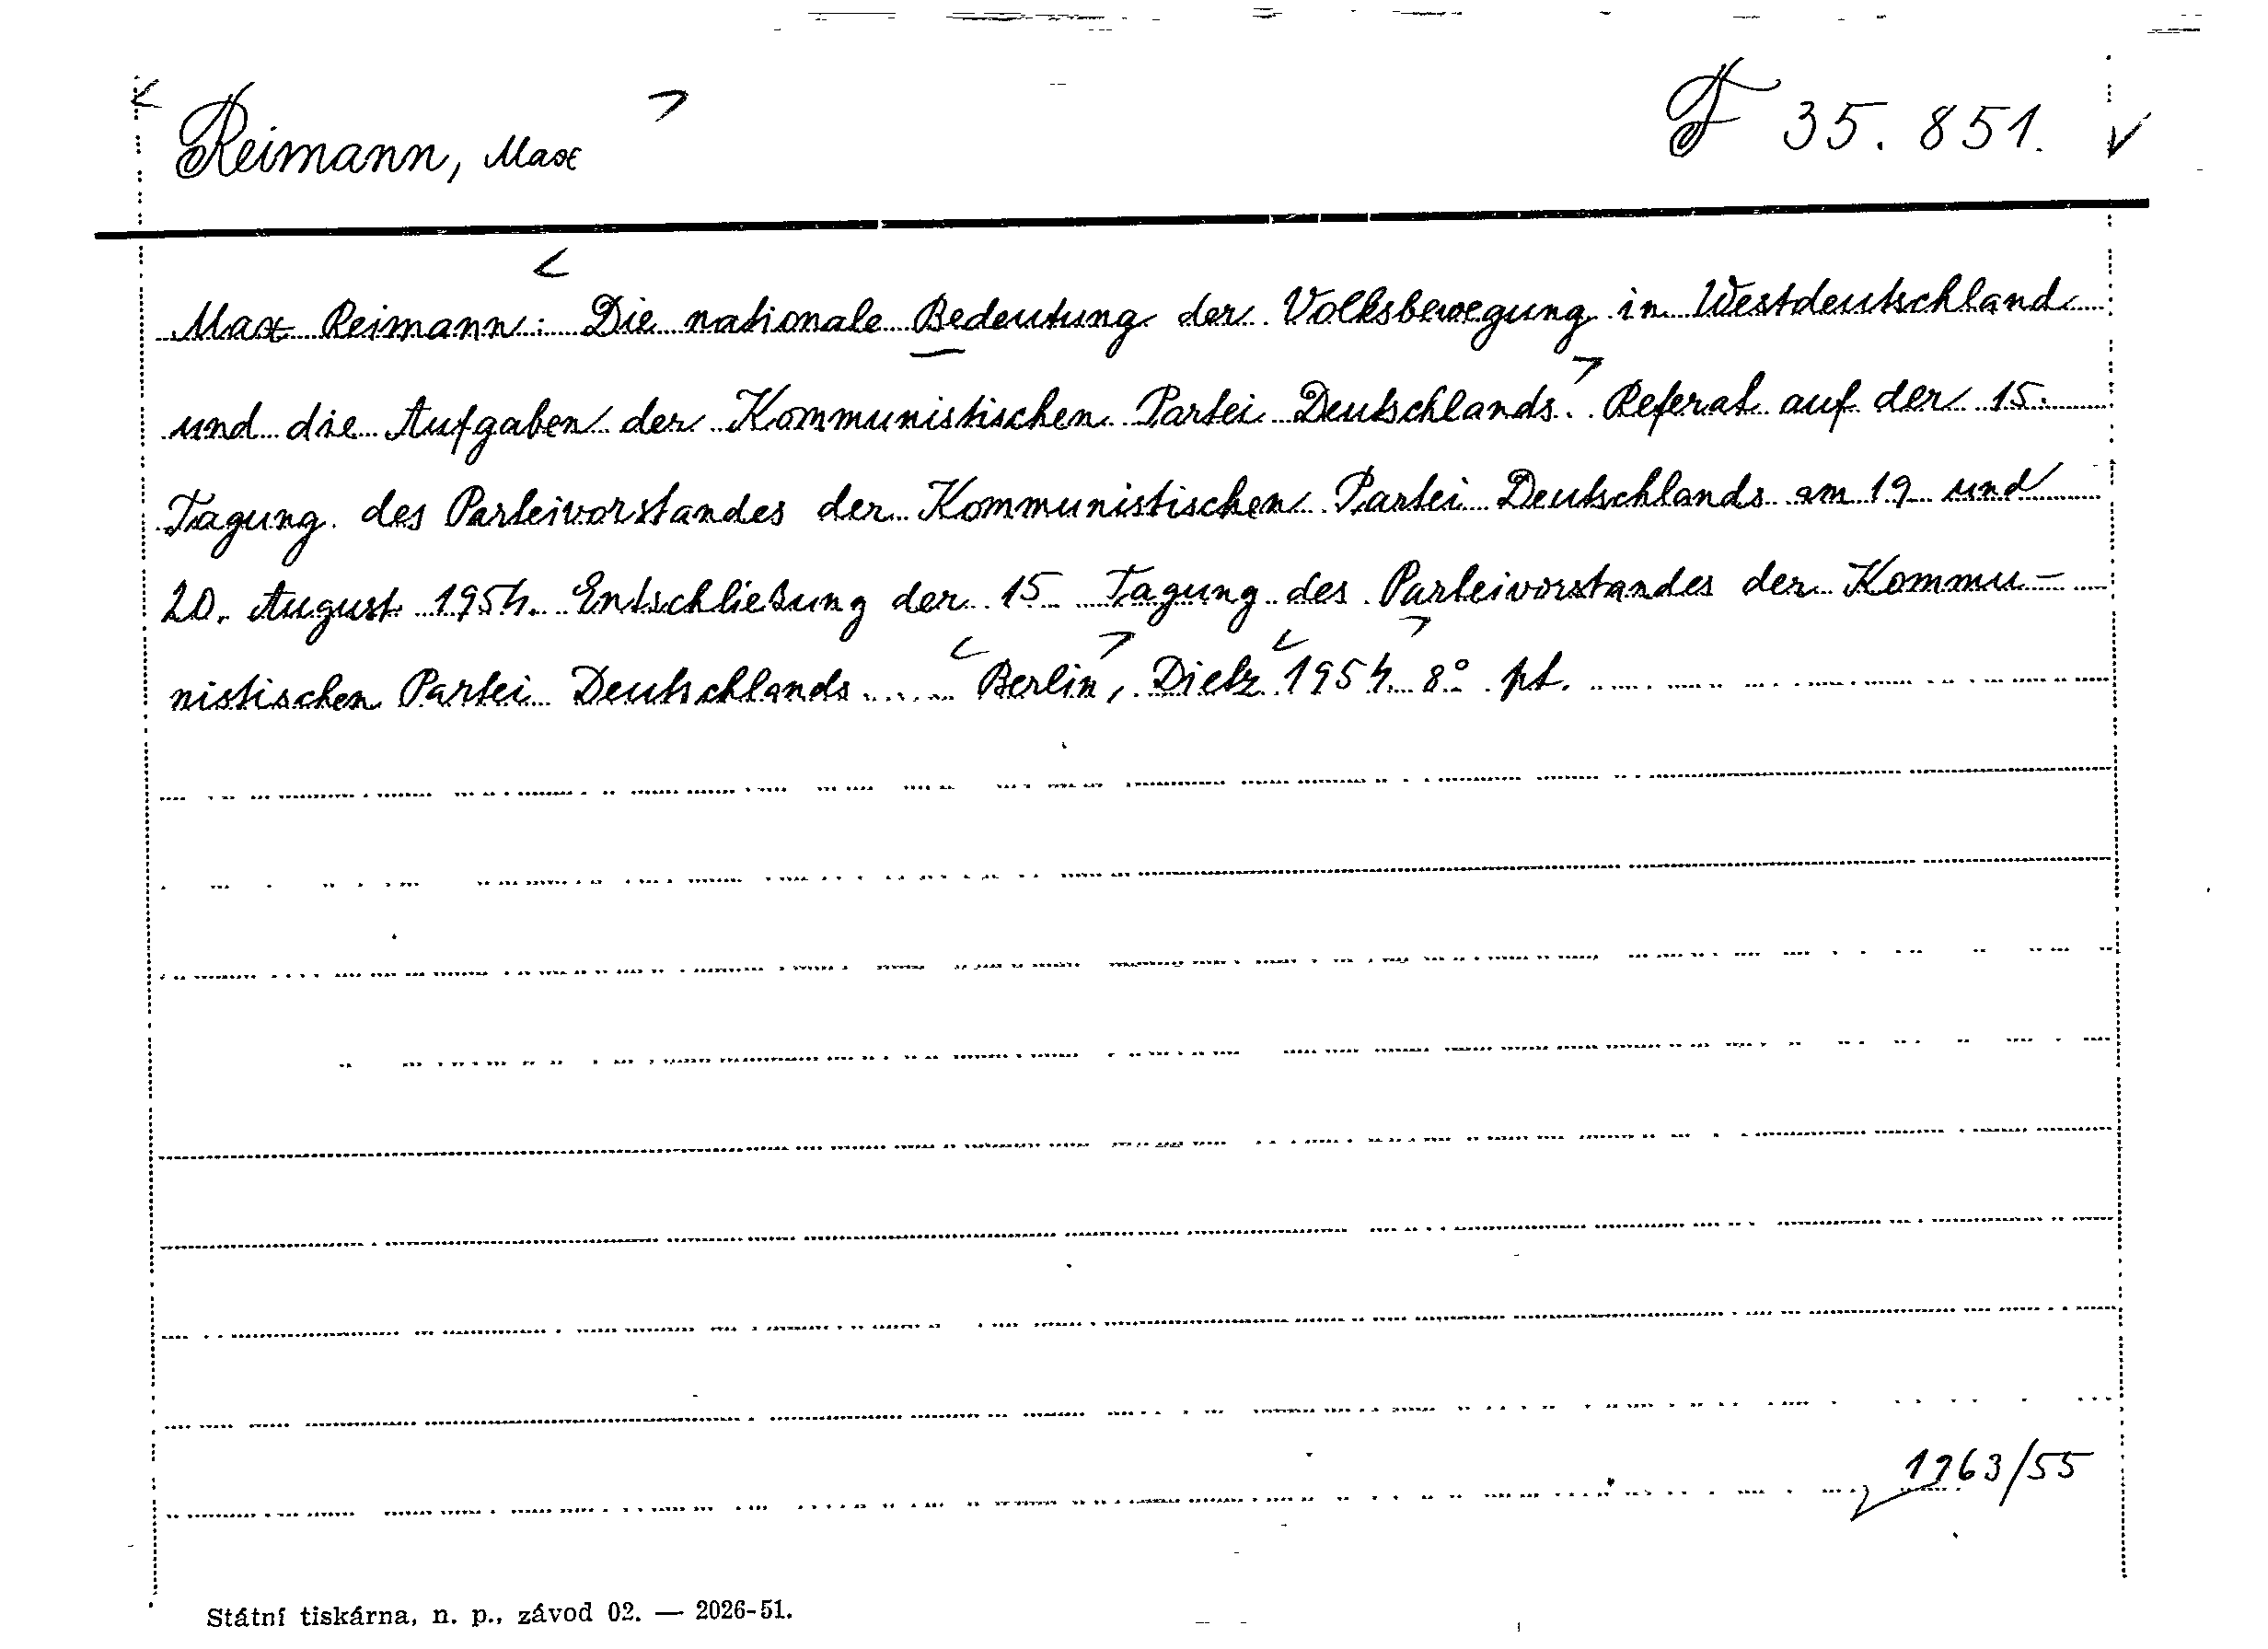 Reimann, Max
F 35.851.
Max Reimann: Die nationale Bedeutung der Volksbewegung in Westdeutschland
und die Aufgaben der Kommunistischen Partei Deutschlands. Referat auf der 15.
Tagung des Parteivorstandes der Kommunistischen Partei Deutschlands am 19 und
20. August 1954. Entschließung der 15 Tagung des Parteivorstandes der Kommu-
nistischen Partei Deutschlands. Berlin, Dietz 1954 8° pt.
1963/55
Státní tiskárna, n. p., závod 02. — 2026-51.